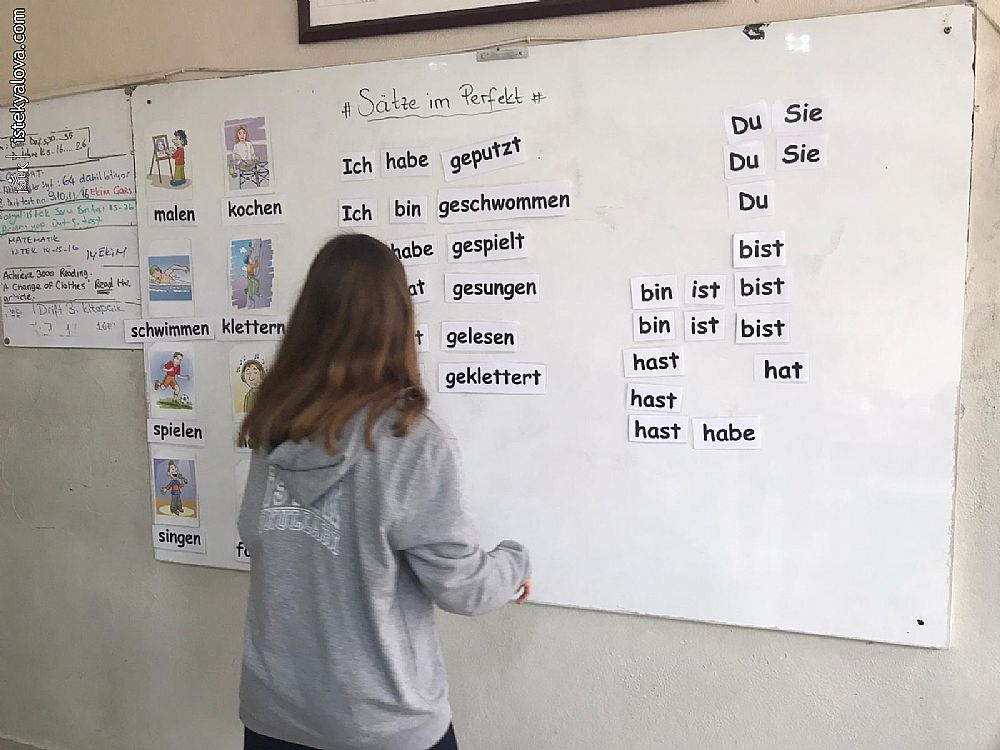 iSTK | istekyalova.com
# Sätze im Perfekt #
malen
kochen
schwimmen
klettern
spielen
singen
Ich habe geputzt
Ich bin geschwommen
habe gespielt
gesungen
gelesen
geklettert
Du Sie
Du Sie
Du
bist
bin ist bist
bin ist bist
hast hat
hast
hast habe
MATEMATIK
İSTEK 14-15-16
14 EKİM
Achieve 3000 Reading.
A Change of Clothes" Read the
article.